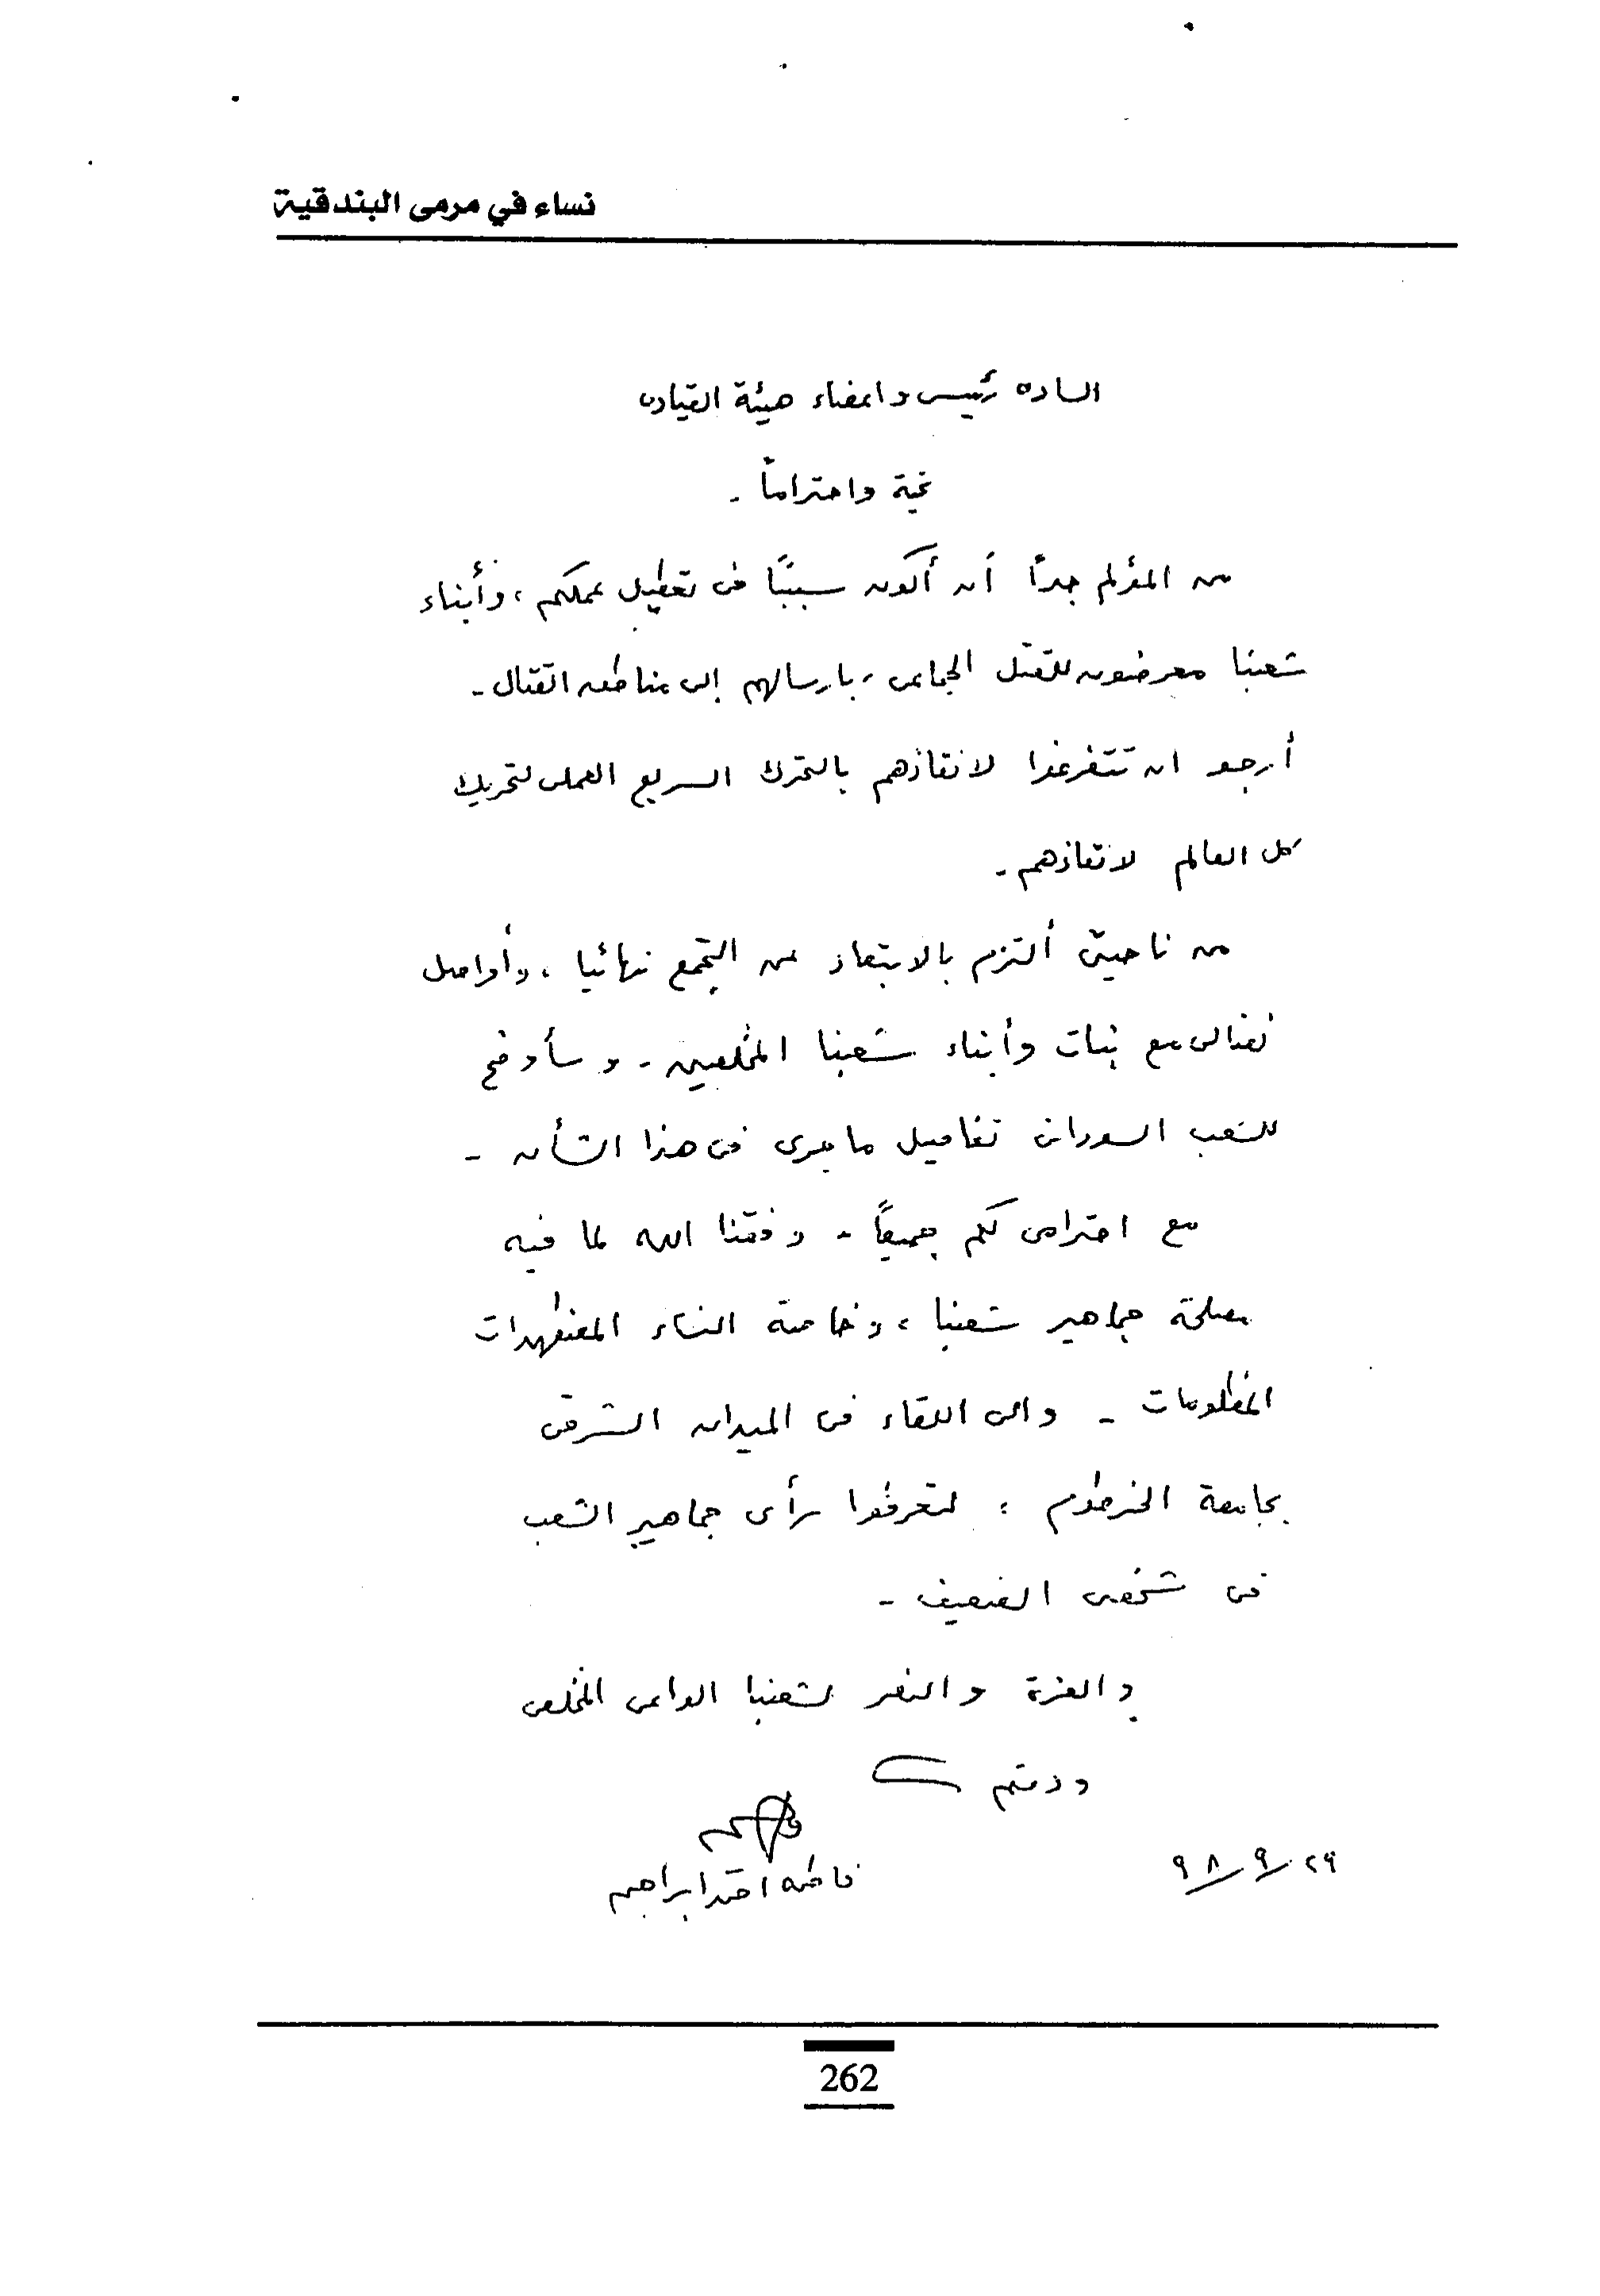 نساء في مرمى البندقية
الساده رئيس و اعضاء هيئة القياده
تحية واحتراماً -
من المؤلم جداً أن أكون سبباً فى تعطيل عملكم، وأبناء
شعبنا معرضون للقتل الجماعى، بارسالهم إلى مناطق القتال -
أرجو ان تتفرغوا لانقاذهم بالتحرك السريع العملى لتحريك
كل العالم لانقاذهم -
من ناحيتى ألتزم بالابتعاد عن التجمع نهائيا، وأواصل
نضالى مع بنات وأبناء شعبنا المخلصين - و سأوضح
للشعب السودانى تفاصيل ما جرى فى هذا الشأن -
مع احترامى لكم جميعاً - وفقنا الله لما فيه
مصلحة جماهير شعبنا، وخاصة النساء المضطهدات
المظلومات - والى اللقاء فى الميدان الشرقى
بجامعة الخرطوم؛ لتعرفوا رأى جماهير الشعب
فى شخصى الضعيف -
والعزة والنصر لشعبنا الواعى المخلص
ودمتم
فاطمه احمد ابراهيم
٢٩/٩/٩٨
262